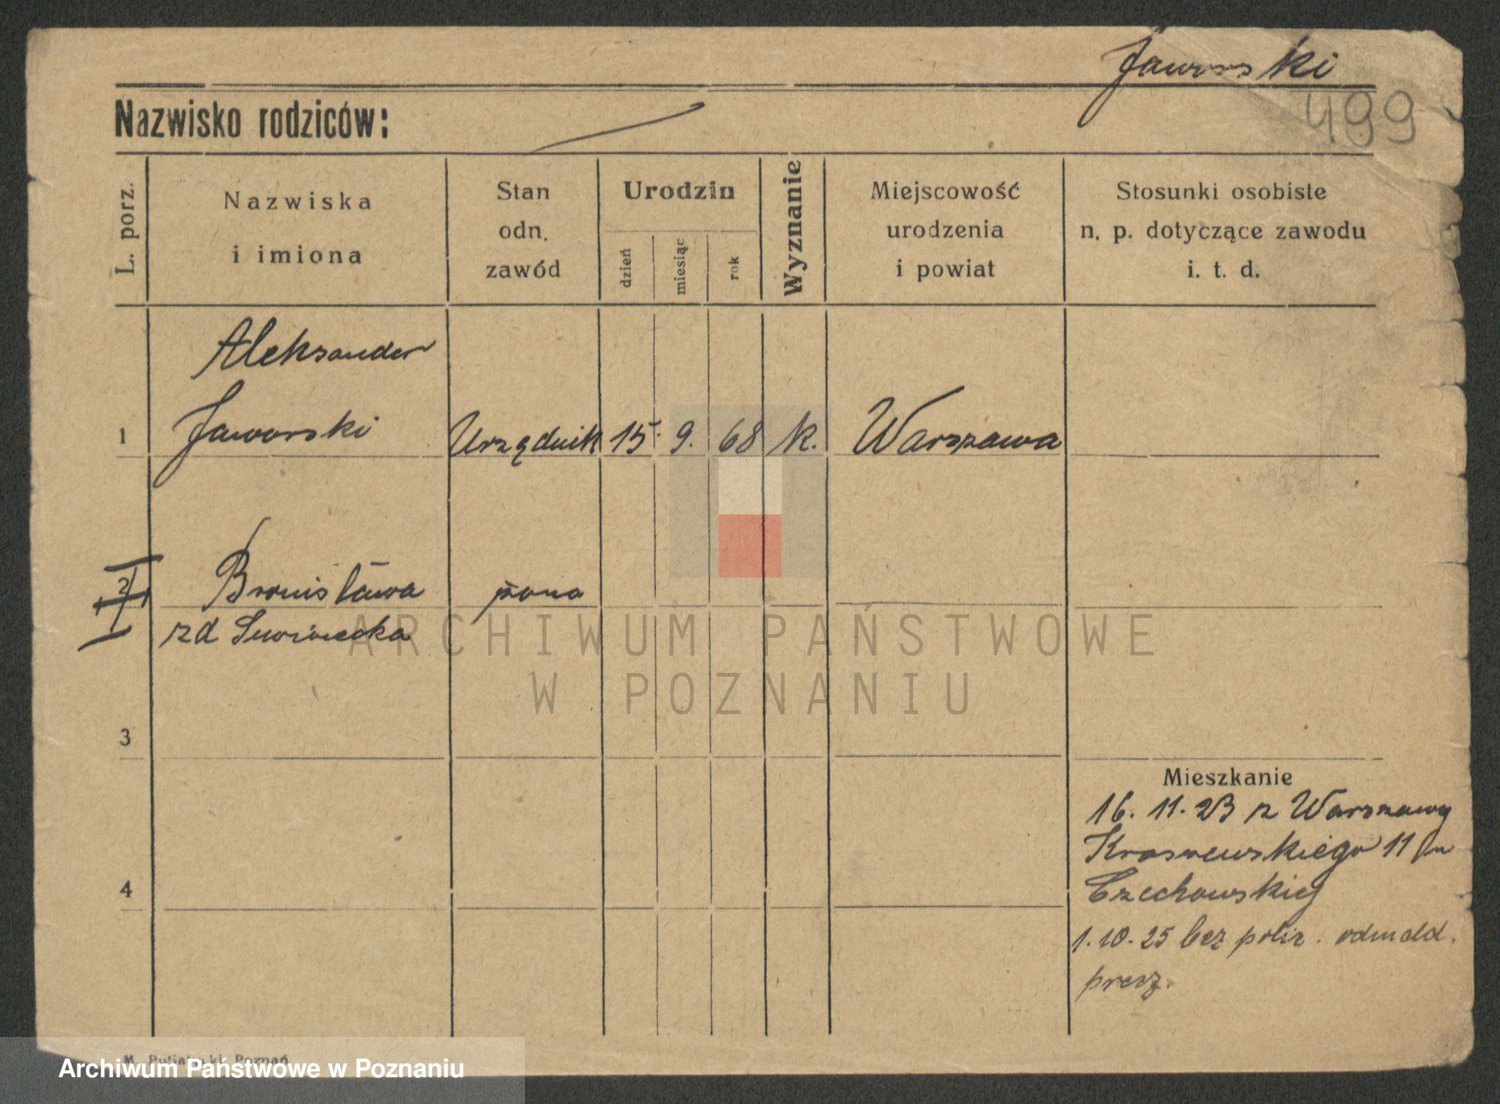 Jaworski
499
Nazwisko rodziców:
L. porz.
Nazwiska
i imiona
Stan
odn.
zawód
Urodzin
dzień
miesiąc
rok
Wyznanie
Miejscowość
urodzenia
i powiat
Stosunki osobiste
n. p. dotyczące zawodu
i. t. d.
Aleksander
1 Jaworski Urzędnik 15. 9. 68 k. Warszawa
2 Bronisława żona
zd
ARCHIWUM PAŃSTWOWE
W POZNANIU
3
Mieszkanie
16. 11. 23 z Warszawy
Kraszewskiego 11
Czechowskiej
4
1. 10. 25 bez
M. Poznań
Archiwum Państwowe w Poznaniu